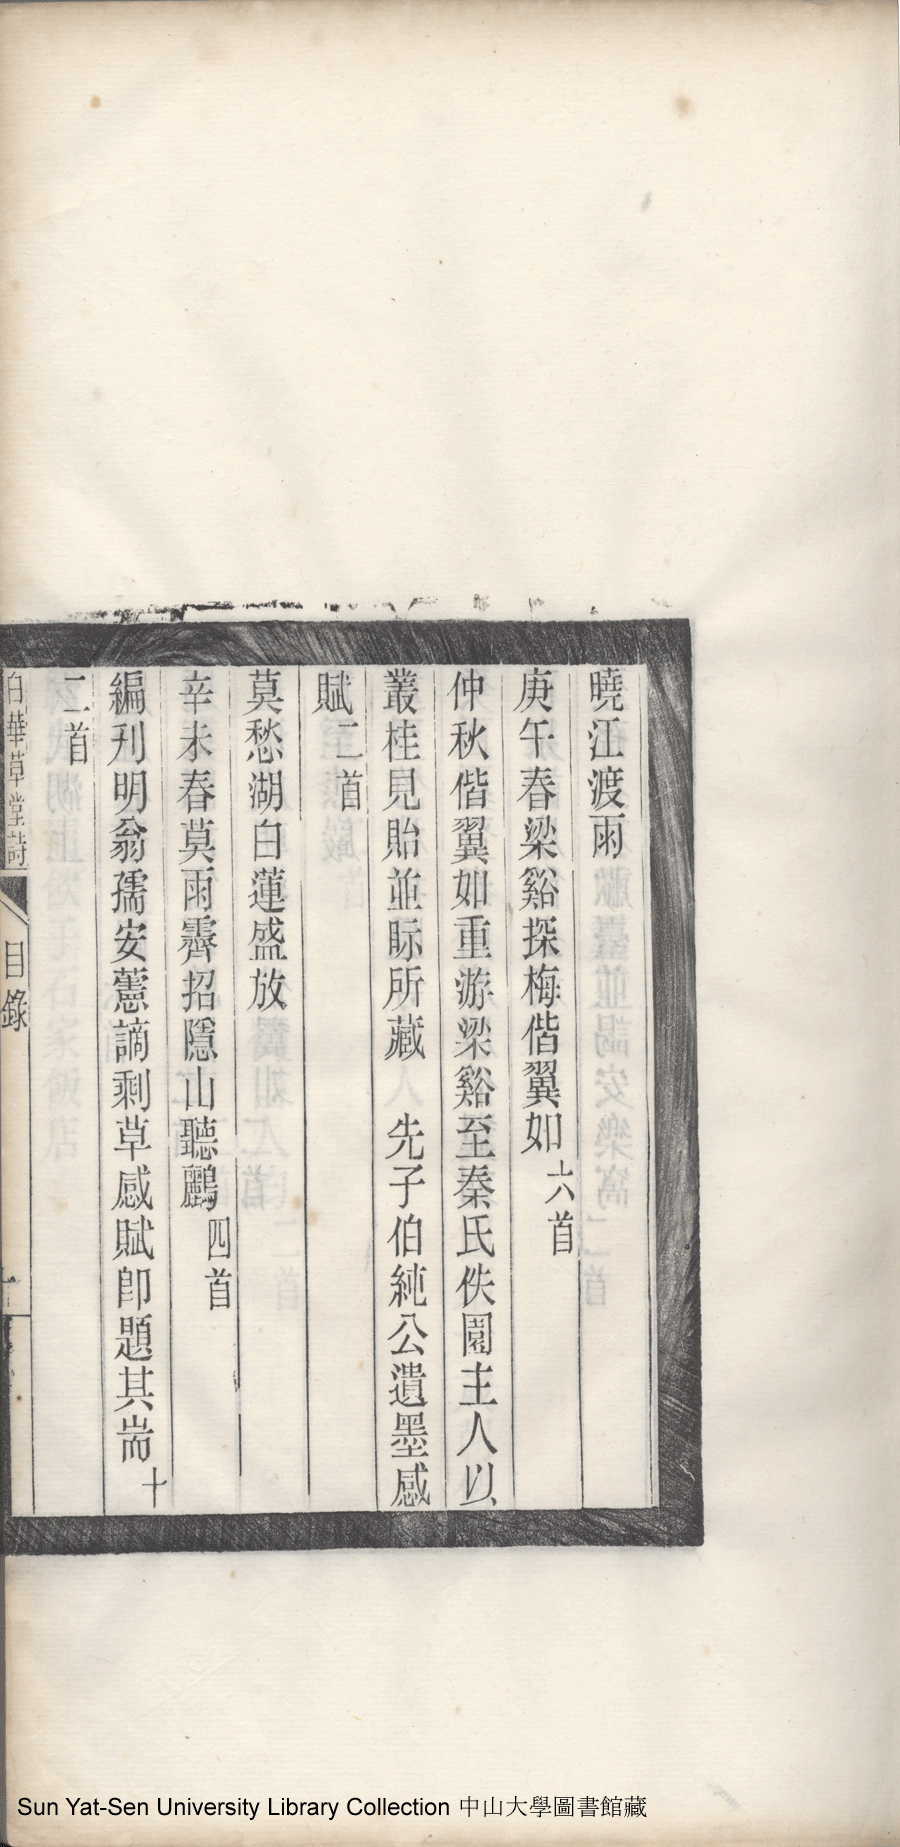 曉江渡雨
庚午春梁谿探梅偕翼如六首
仲秋偕翼如重游梁谿至秦氏佚園主人以
叢桂見貽並眎所藏　先子伯純公遺墨感
賦二首
莫愁湖白蓮盛放
辛未春莫雨霽招隱山聽鸝四首
編刋明翁孺安藼謫剩草感賦卽題其耑十
二首
白華草堂詩
目錄
Sun Yat-Sen University Library Collection 中山大學圖書館藏